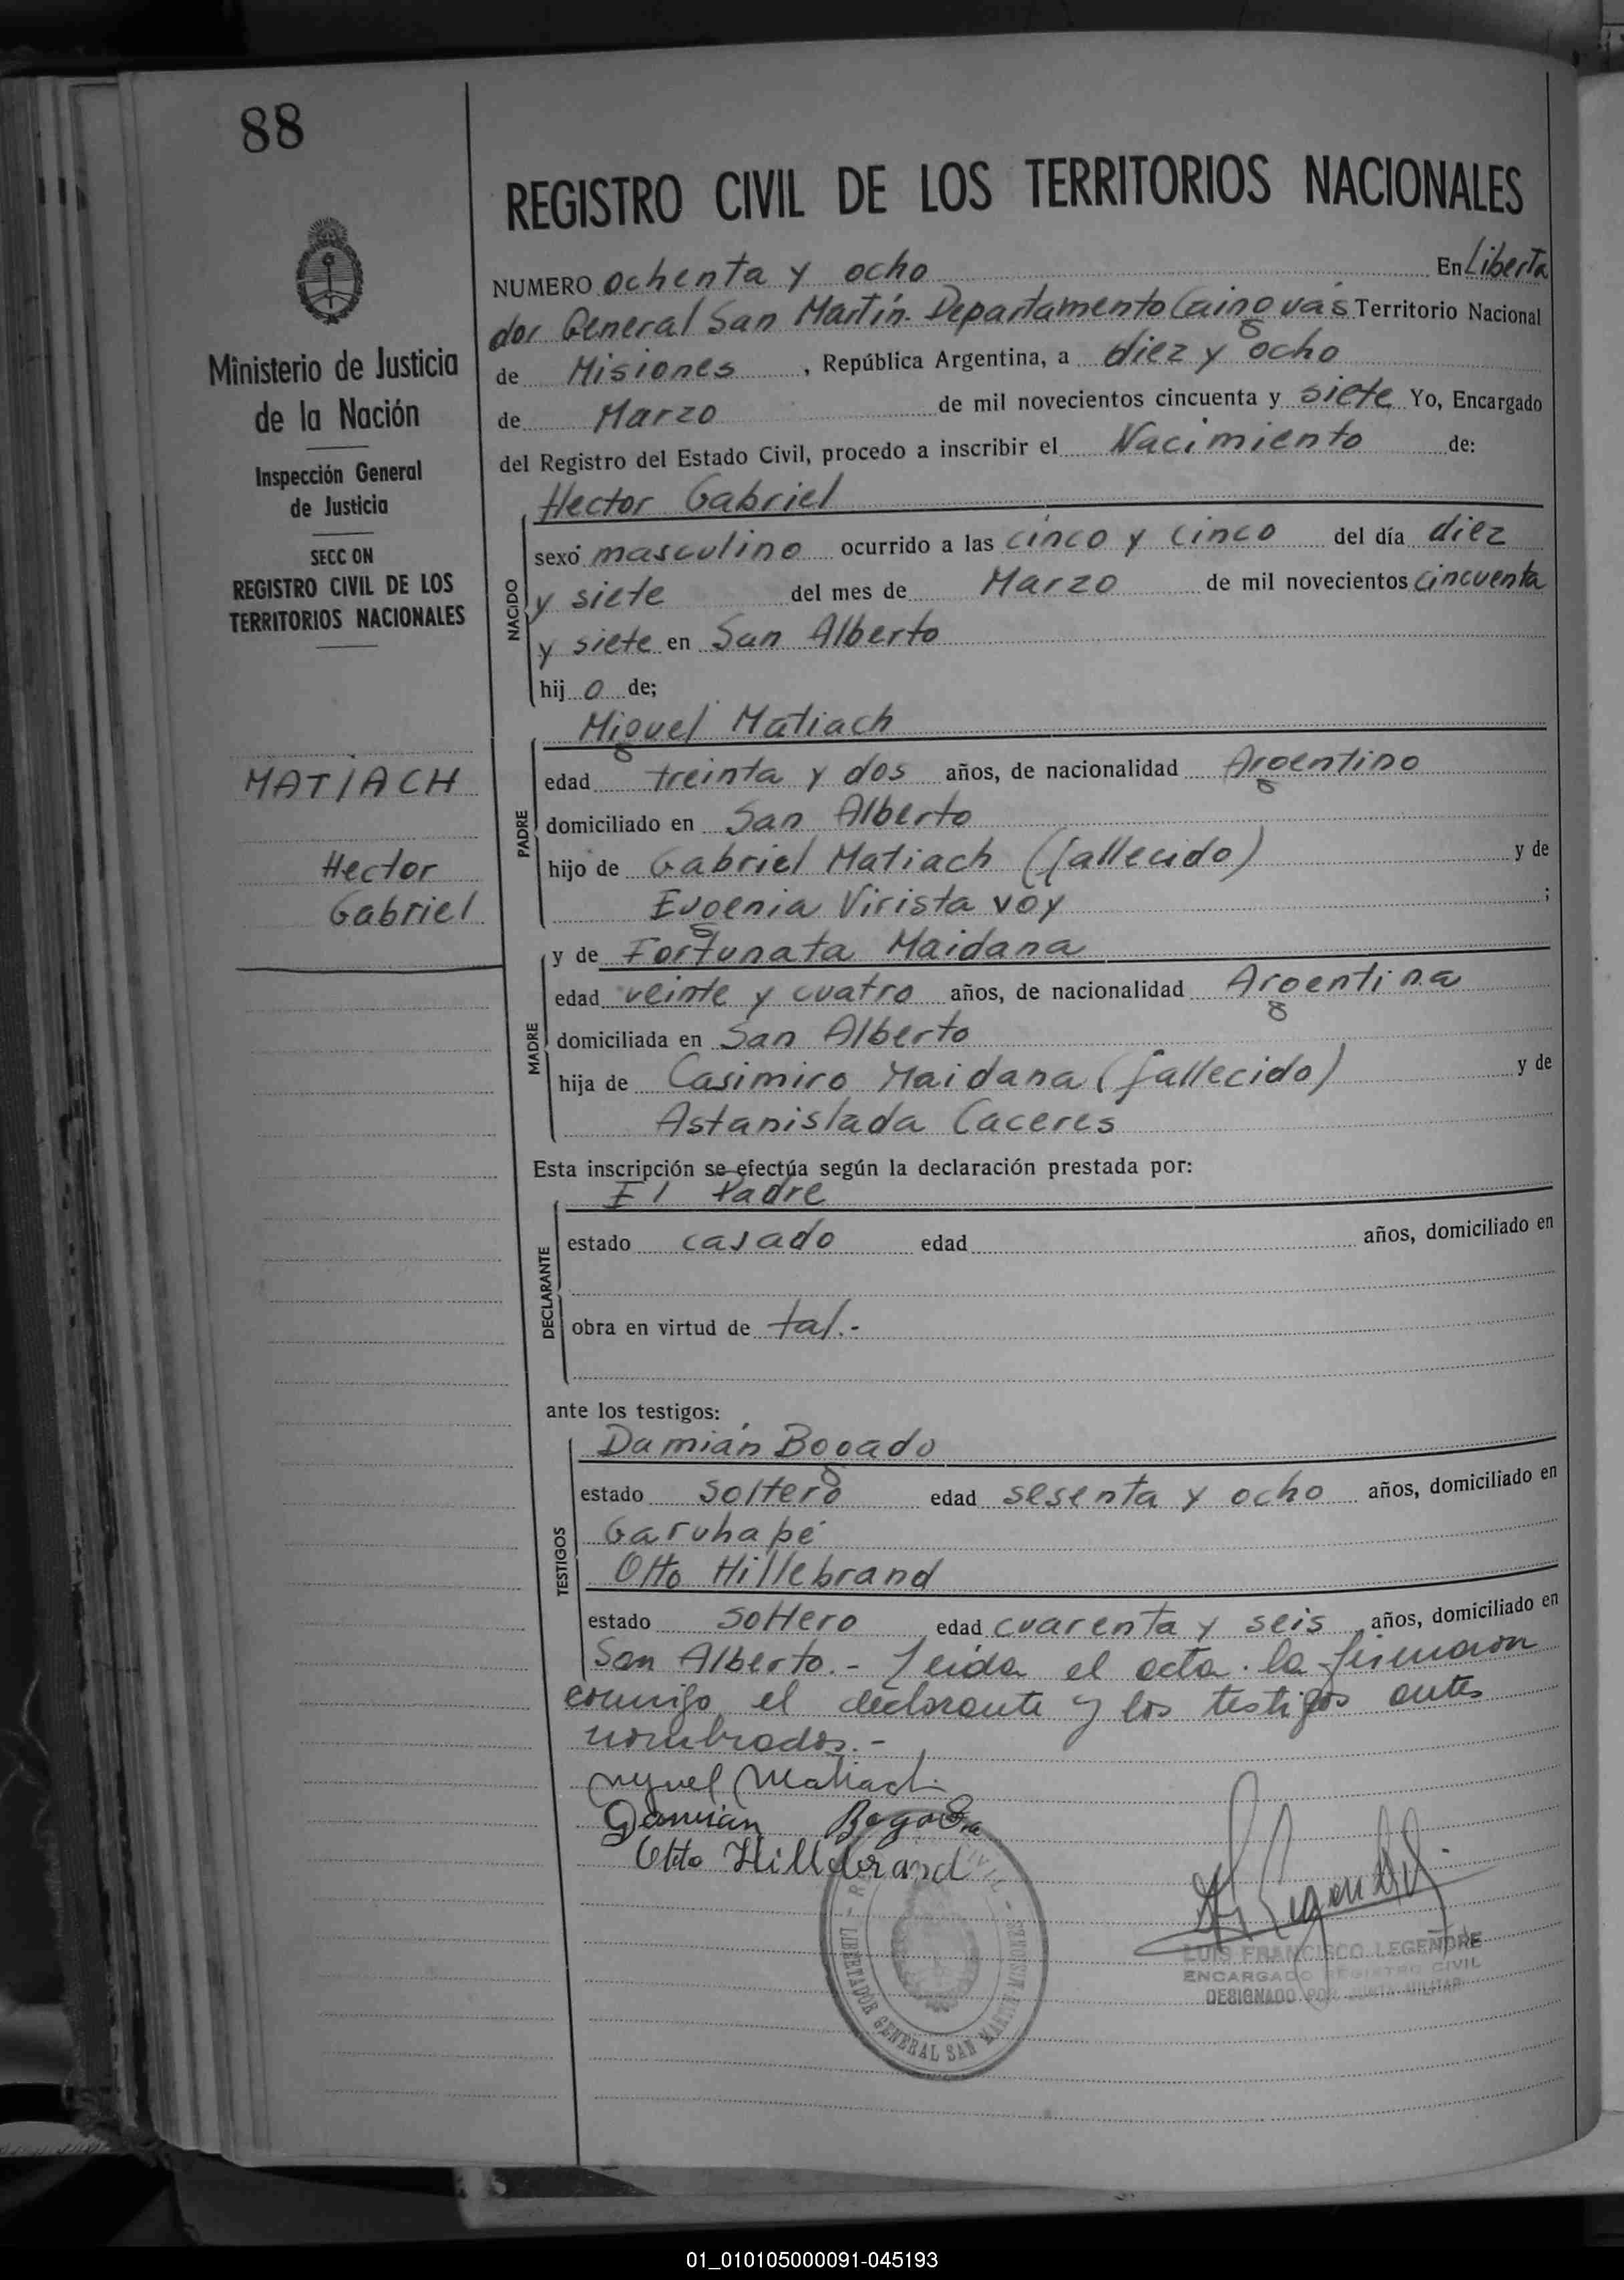 88
REGISTRO CIVIL DE LOS TERRITORIOS NACIONALES
Ministerio de Justicia
de la Nación
Inspección General
de Justicia
SECC ON
REGISTRO CIVIL DE LOS
TERRITORIOS NACIONALES
MATIACH
Hector
Gabriel
NUMERO ochenta y ocho En Liberta
dor General San Martín. Departamento Cainguás Territorio Nacional
de Misiones, República Argentina, a diez y ocho
de Marzo de mil novecientos cincuenta y siete Yo, Encargado
del Registro del Estado Civil, procedo a inscribir el Nacimiento de:
Hector Gabriel
NACIDO
sexo masculino ocurrido a las cinco y cinco del día diez
y siete del mes de Marzo de mil novecientos cincuenta
y siete en San Alberto
hij o de;
Miguel Matiach
PADRE
edad treinta y dos años, de nacionalidad Argentino
domiciliado en San Alberto
hijo de Gabriel Matiach (fallecido) y de
Eugenia Virista voy ;
y de Fortunata Maidana
MADRE
edad veinte y cuatro años, de nacionalidad Argentina
domiciliada en San Alberto
hija de Casimiro Maidana (fallecido) y de
Astanislada Caceres
Esta inscripción se efectúa según la declaración prestada por:
El Padre
DECLARANTE
estado casado edad años, domiciliado en
obra en virtud de tal.-
ante los testigos:
Damián Bogado
TESTIGOS
estado soltero edad sesenta y ocho años, domiciliado en
Garuhapé
Otto Hillebrand
estado soltero edad cuarenta y seis años, domiciliado en
San Alberto.- Leida el acta. la firmaron
conmigo el declarante y los testigos antes
nombrados.-
Miguel Matiach
Damián Bogado
Otto Hillebrand
LIBERTADOR GENERAL SAN MARTIN MISIONES
LUIS FRANCISCO LEGENDRE
ENCARGADO REGISTRO CIVIL
DESIGNADO POR JUNTA MILITAR
01_010105000091-045193